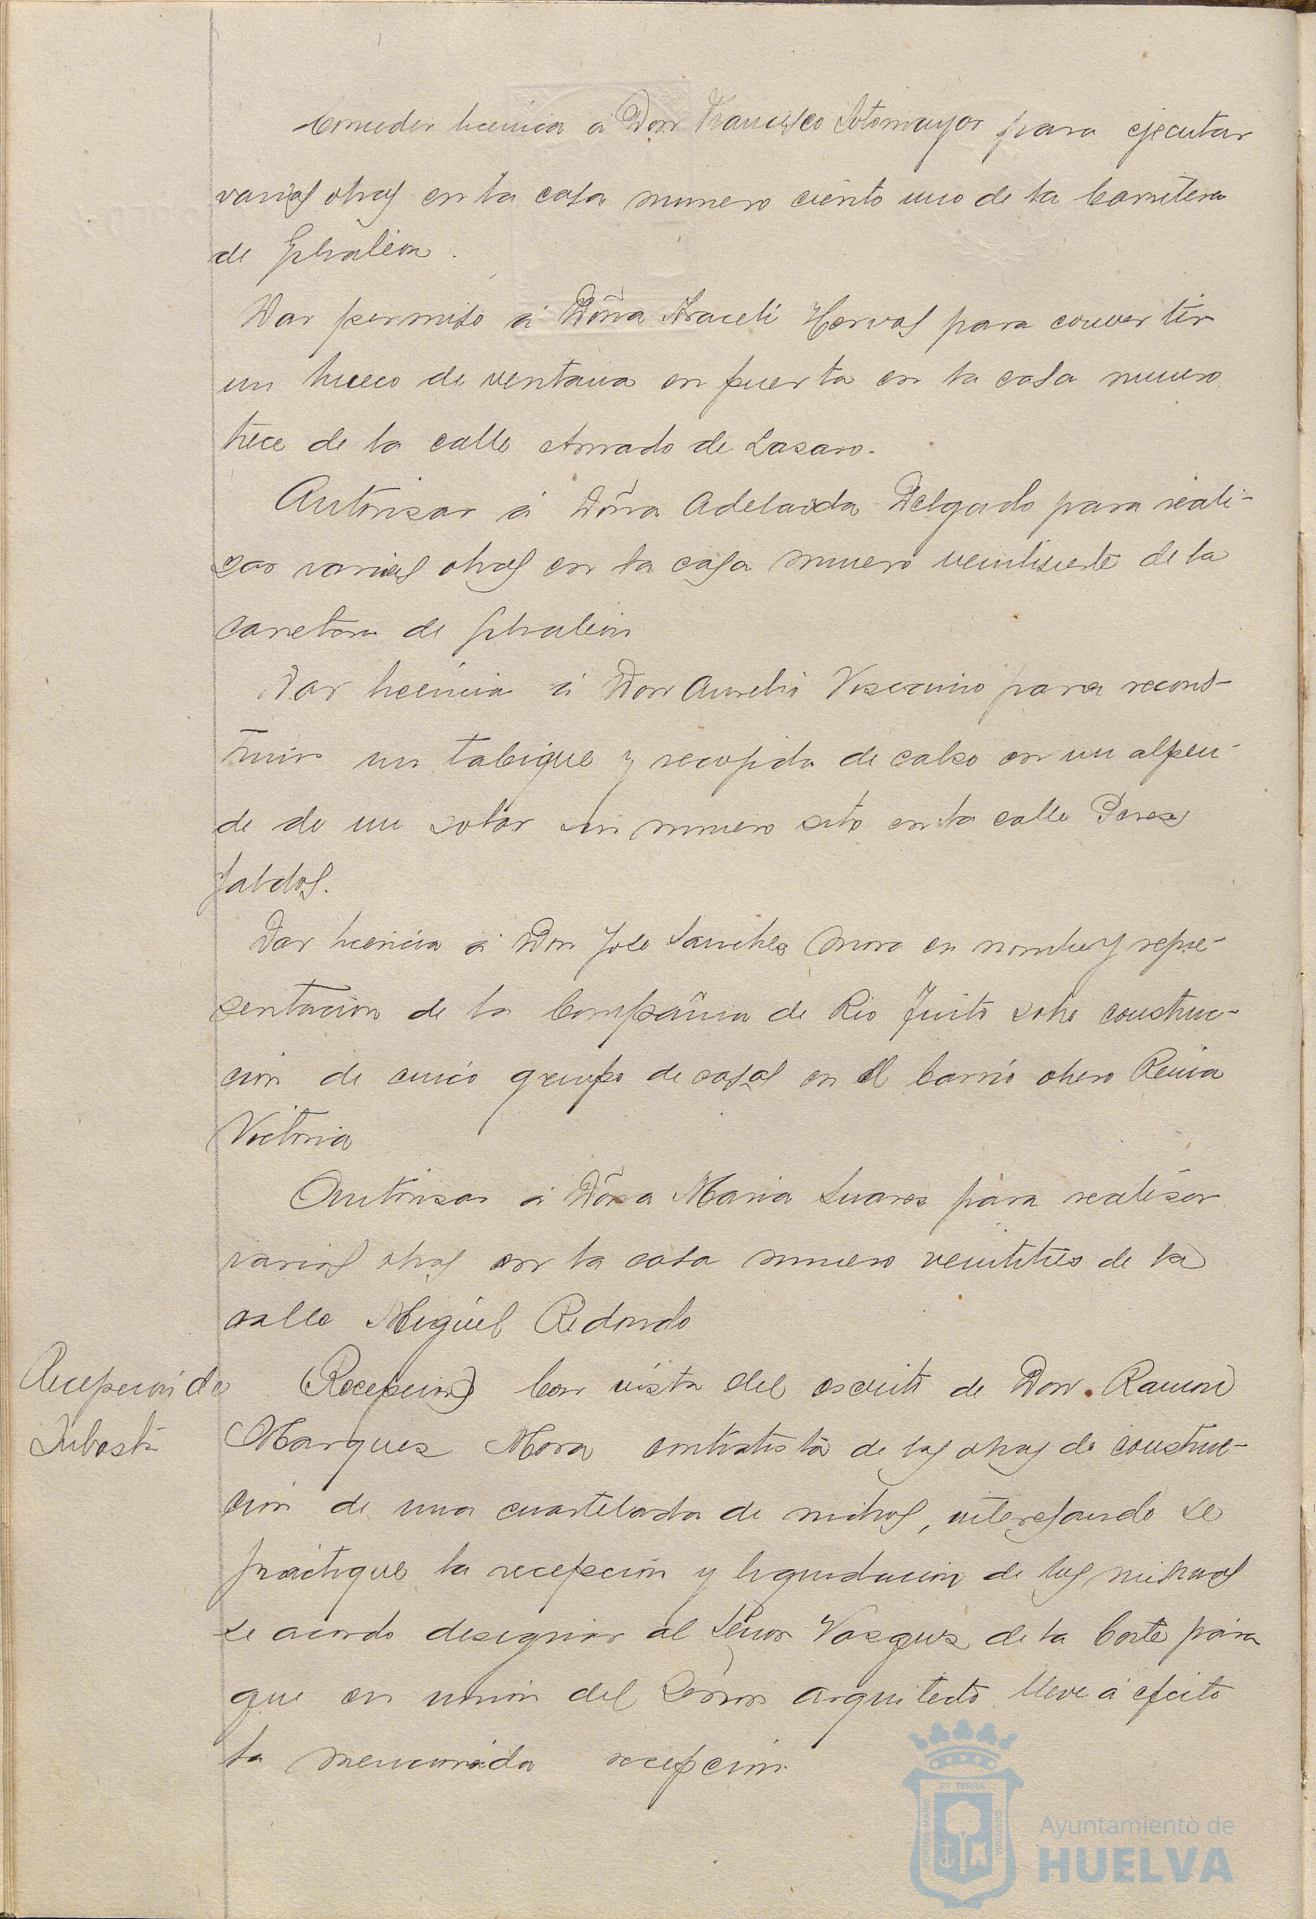 Conceder licencia á Don Francisco Sotomayor para ejecutar
varias obras en la casa numero ciento uno de la Carretera
de Gibraleon.
Dar permiso á Doña Araceli Hervas para convertir
un hueco de ventana en puerta en la casa numero
trece de la calle Amado de Lazaro.
Autorizar á Doña Adelaida Delgado para reali-
zar varias obras en la casa numero veintisiete de la
carretera de Gibraleon
Dar licencia á Don Aurelio Viscaino para recons-
truir un tabique y recogida de calzo en un alpen-
de de un solar sin numero sito en la calle Perez
Galdos.
Dar licencia á Don Jose Sanchez Mora en nombre y repre-
sentacion de la Compañia de Rio Tinto sobre construc-
cion de cinco grupo de casas en el barrio obrero Reina
Victoria
Autorisar á Doña Maria Suares para realisar
varias obras en la casa numero veintitres de la
calle Miguel Redondo
Recepcion de
Subasta
(Recepcion) Con vista del escrito de Don Ramon
Marquez Mora contratista de las obras de construc-
cion de una cuartelada de nichos, interesando se
practique la recepcion y liquidacion de las mismas
se acordo designar al Señor Vazquez de la Corte para
que en union del Señor arquitecto lleve á efecto
la mencionada recepcion
PORTUS MARIS ET TERRA CUSTODIA
Ayuntamiento de
HUELVA